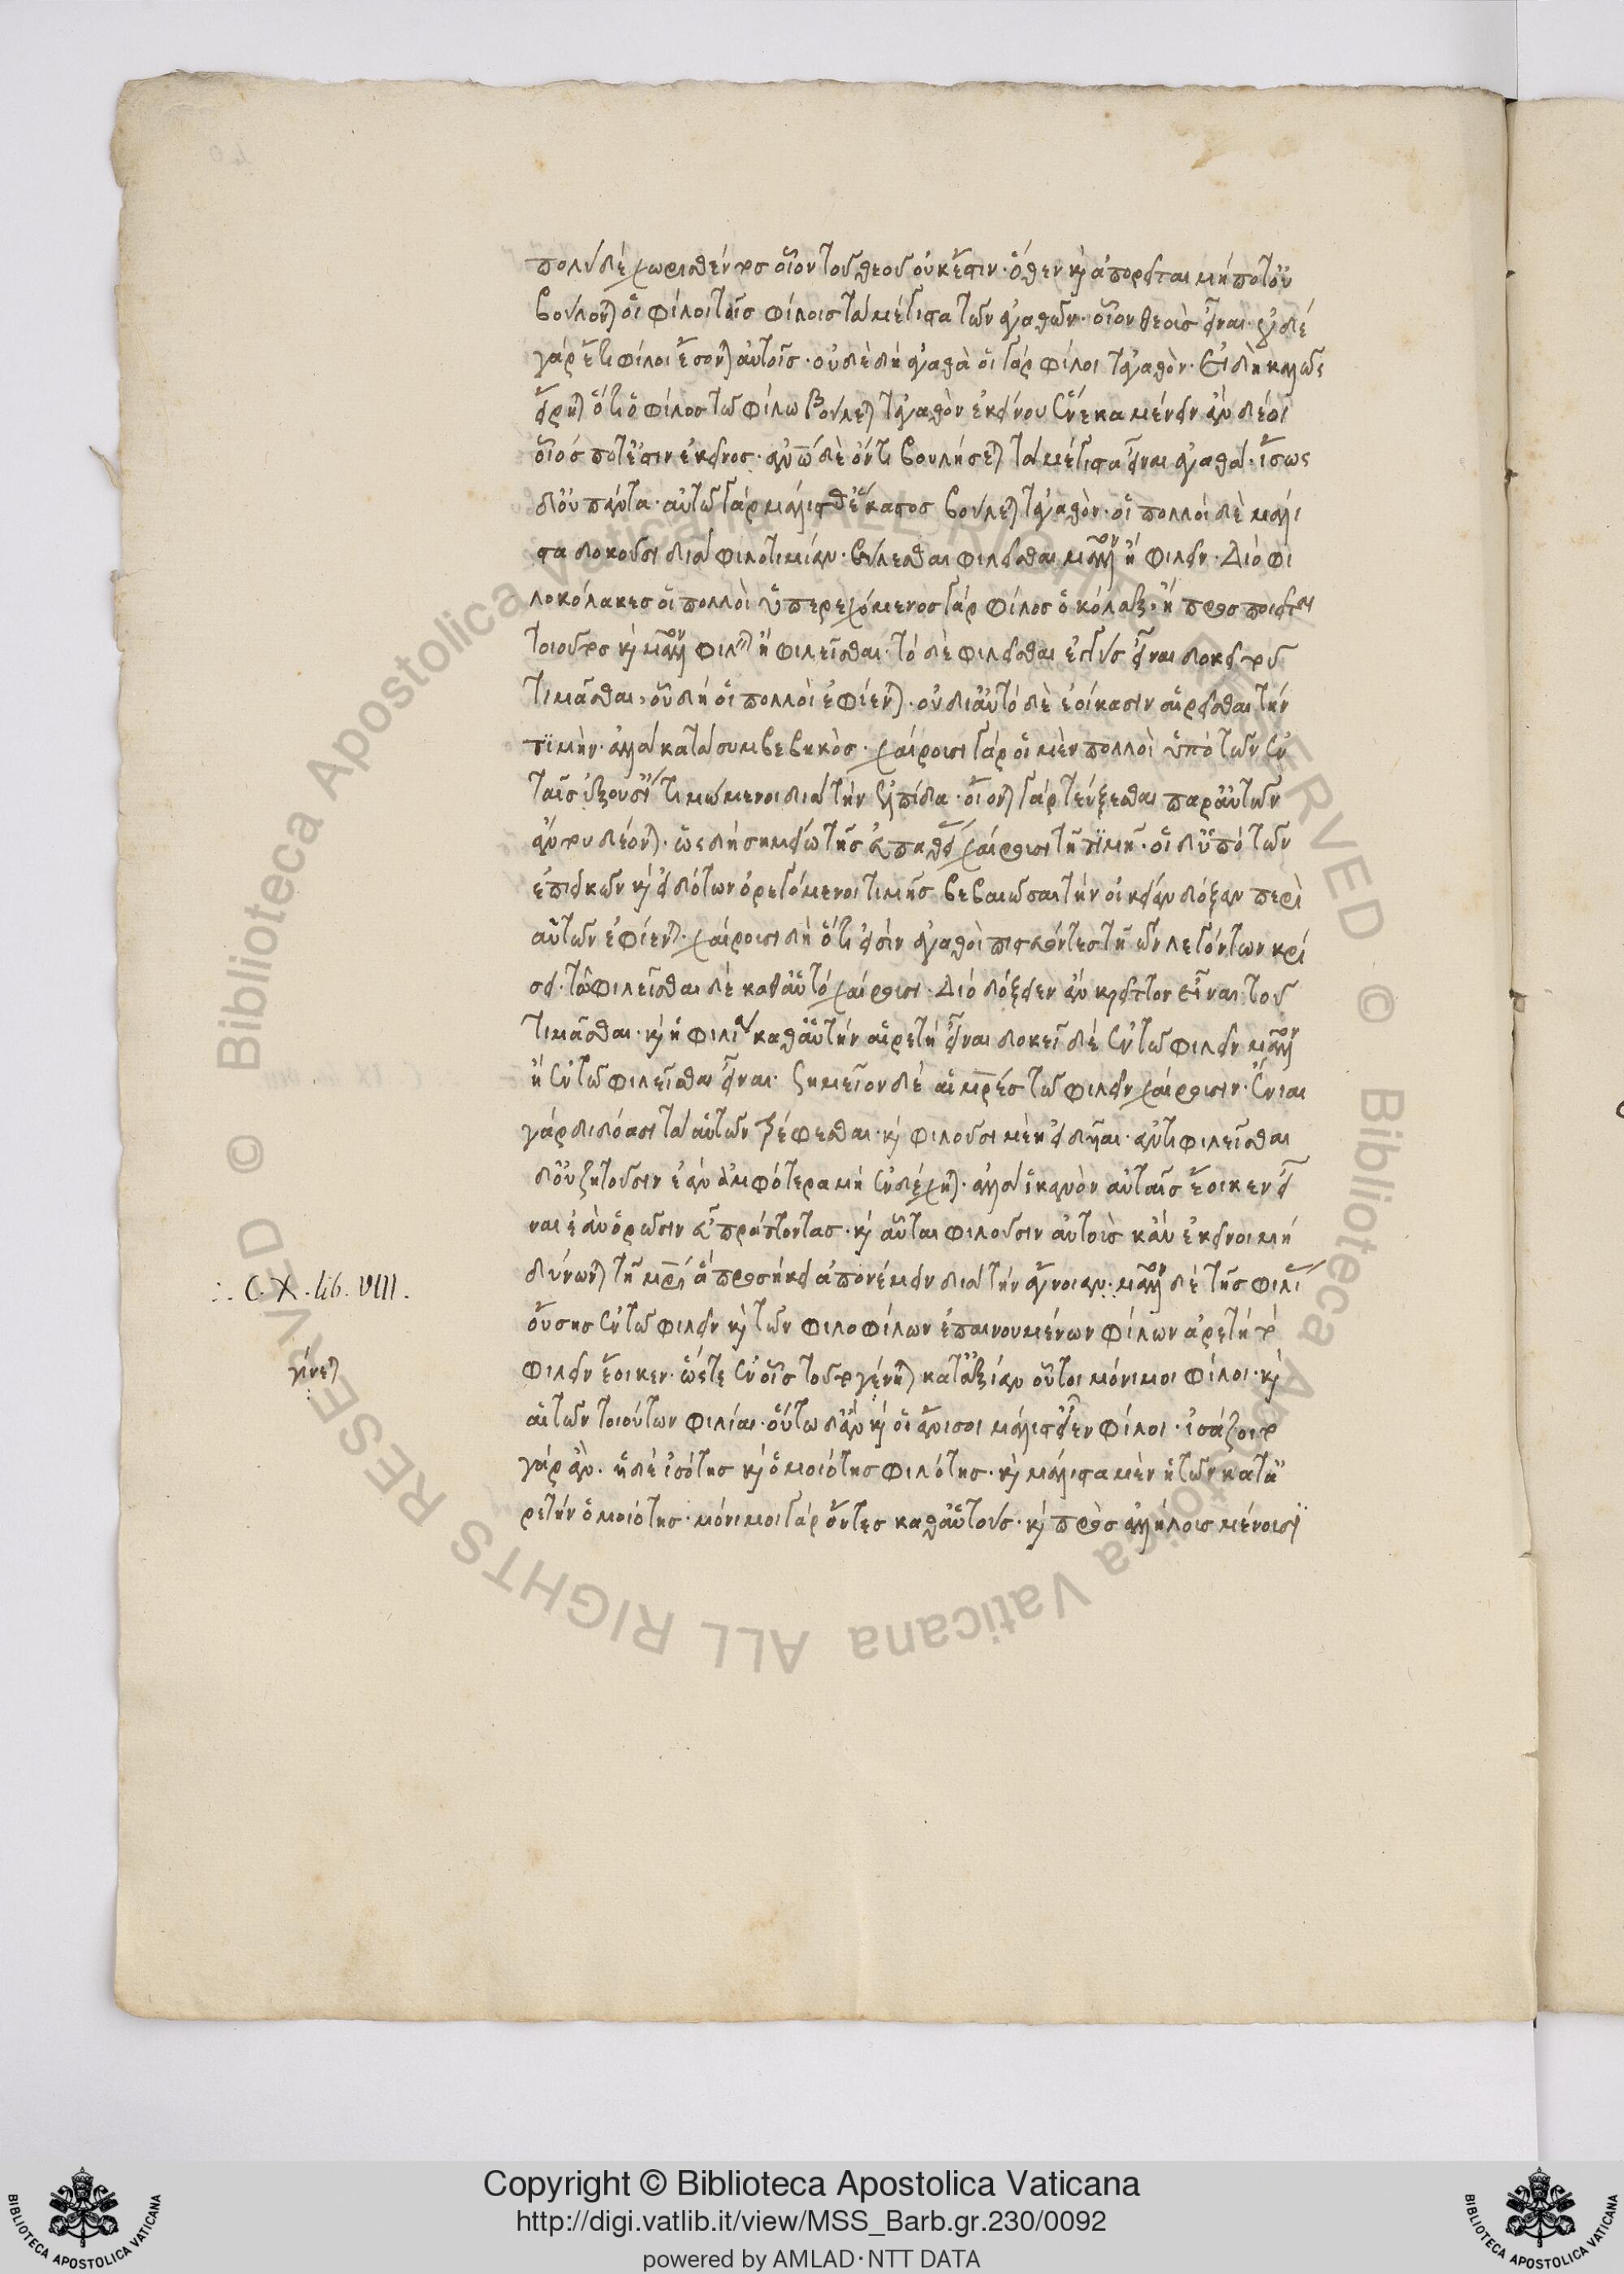 πολὺ δὲ χωρισθέντος οἷον τοῦ θεοῦ οὐκ ἔστιν· ὅθεν καὶ ἀπορεῖται μή ποτ' οὐ
βούλονται οἱ φίλοι τοῖς φίλοις τὰ μέγιστα τῶν ἀγαθῶν· οἷον θεοὺς εἶναι· οὐδὲ
γὰρ ἔτι φίλοι ἔσονται αὐτοῖς· οὐδὲ δὴ ἀγαθὰ οἱ γὰρ φίλοι τἀγαθὸν· Εἰ δὴ καλῶς
εἴρηται ὅτι ὁ φίλος τῶ φίλω βούλεται τἀγαθὸν ἐκείνου ἕνεκα μένειν ἂν δέοι
οἷός ποτ' ἐστὶν ἐκεῖνος· ἀνθρώπω δὲ ὄντι βουλήσεται τὰ μέγιστα εἶναι ἀγαθά· ἴσως
δ' οὐ πάντα· αὑτῶ γὰρ μάλισθ' ἕκαστος βούλεται τἀγαθὸν· οἱ πολλοὶ δὲ μάλι
στα δοκοῦσι διὰ φιλοτιμίαν· βούλεσθαι φιλεῖσθαι μᾶλλον ἢ φιλεῖν· Διὸ φι
λοκόλακες οἱ πολλοὶ ὑπερεχόμενος γὰρ φίλος ὁ κόλαξ· ἢ προσποιεῖται
τοιοῦτος καὶ μᾶλλον φιλεῖν ἢ φιλεῖσθαι· τὸ δὲ φιλεῖσθαι ἐγγὺς εἶναι δοκεῖ τοῦ
τιμᾶσθαι, οὗ δὴ οἱ πολλοὶ ἐφίενται· οὐ δι' αὑτὸ δὲ ἐοίκασιν αἱρεῖσθαι τὴν
τιμὴν· ἀλλὰ κατὰ συμβεβηκὸς· χαίρουσι γὰρ οἱ μὲν πολλοὶ ὑπὸ τῶν ἐν
ταῖς ἐξουσίαις τιμώμενοι διὰ τὴν ἐλπίδα· οἴονται γὰρ τεύξεσθαι παρ' αὐτῶν
ἄν του δέονται· ὡς δὴ σημείω τῆς εὐπαθείας χαίρουσι τῆ τιμῆ· οἱ δ' ὑπὸ τῶν
ἐπιεικῶν καὶ εἰδότων ὀρεγόμενοι τιμῆς βεβαιῶσαι τὴν οἰκείαν δόξαν περὶ
αὑτῶν ἐφίενται· χαίρουσι δὴ ὅτι εἰσὶν ἀγαθοὶ πιστεύοντες τῆ τῶν λεγόντων κρί
σει· τῶ φιλεῖσθαι δὲ καθ' αὑτὸ χαίρουσι· Διὸ δόξειεν ἂν κρεῖττον εἶναι τοῦ
τιμᾶσθαι· καὶ ἡ φιλία καθ' αὑτὴν αἱρετὴ εἶναι δοκεῖ δὲ ἐν τῶ φιλεῖν μᾶλλον
ἢ ἐν τῶ φιλεῖσθαι εἶναι· Σημεῖον δὲ αἱ μητέρες τῶ φιλεῖν χαίρουσιν· Ἔνιαι
γὰρ διδόασι τὰ αὑτῶν τρέφεσθαι· καὶ φιλοῦσι μὲν εἰδυῖαι· ἀντιφιλεῖσθαι
δ' οὐ ζητοῦσιν ἐὰν ἀμφότερα μὴ ἐνδέχηται· ἀλλ' ἱκανὸν αὐταῖς ἔοικεν εἶ
ναι ἐὰν ὁρῶσιν εὖ πράττοντας· καὶ αὗται φιλοῦσιν αὐτοὺς κἂν ἐκεῖνοι μὴ
δύνωνται τῆ μητρὶ ἃ προσήκει ἀπονέμειν διὰ τὴν ἄγνοιαν· μᾶλλον δὲ τῆς φιλίας
∴ C. X. lib. VIII.
οὔσης ἐν τῶ φιλεῖν καὶ τῶν φιλοφίλων ἐπαινουμένων φίλων ἀρετῆ τὸ
φιλεῖν ἔοικεν· ὥστε ἐν οἷς τοῦτο γένηται κατ' ἀξίαν οὗτοι μόνιμοι φίλοι· καὶ
γίνεται
αἱ τῶν τοιούτων φιλίαι· οὕτω δ' ἂν καὶ οἱ ἄνισοι μάλιστ' εἶεν φίλοι· ἰσάζοιντο
γὰρ ἂν· ἡ δὲ ἰσότης καὶ ὁμοιότης φιλότης· καὶ μάλιστα μὲν ἡ τῶν κατ' ἀ
ρετὴν ὁμοιότης· μόνιμοι γὰρ ὄντες καθ' αὑτοὺς· καὶ πρὸς ἀλλήλους μένουσι
Copyright © Biblioteca Apostolica Vaticana
http://digi.vatlib.it/view/MSS_Barb.gr.230/0092
powered by AMLAD·NTT DATA
BIBLIOTECA APOSTOLICA VATICANA
BIBLIOTECA APOSTOLICA VATICANA
© Biblioteca Apostolica Vaticana ALL RIGHTS RESERVED
© Biblioteca Apostolica Vaticana ALL RIGHTS RESERVED